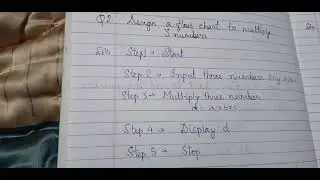 Q2 Design a flow chart to multiply
3 numbers
Soln Step 1→ Start
Step 2→ Input three numbers
Step 3→ Multiply three number
d = a×b×c
Step 4→ Display d
Step 5→ Stop